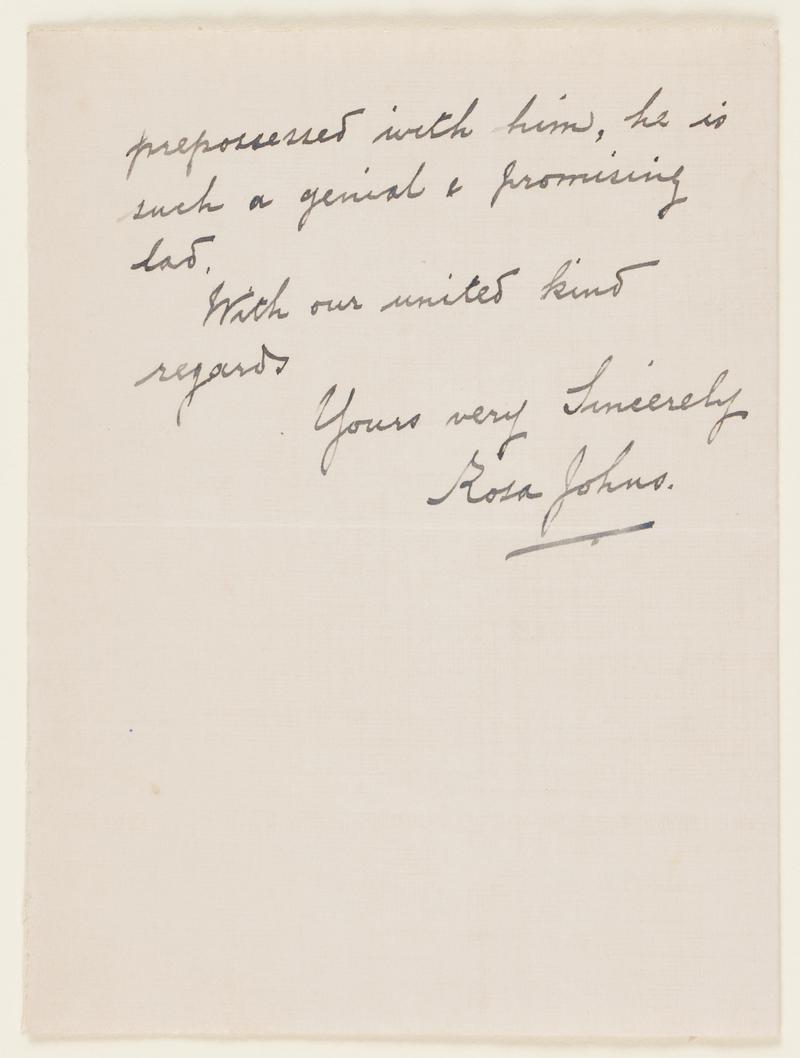 prepossessed with him, he is
such a genial & promising
lad.
With our united kind
regards
Yours very Sincerely
Rosa Johns.